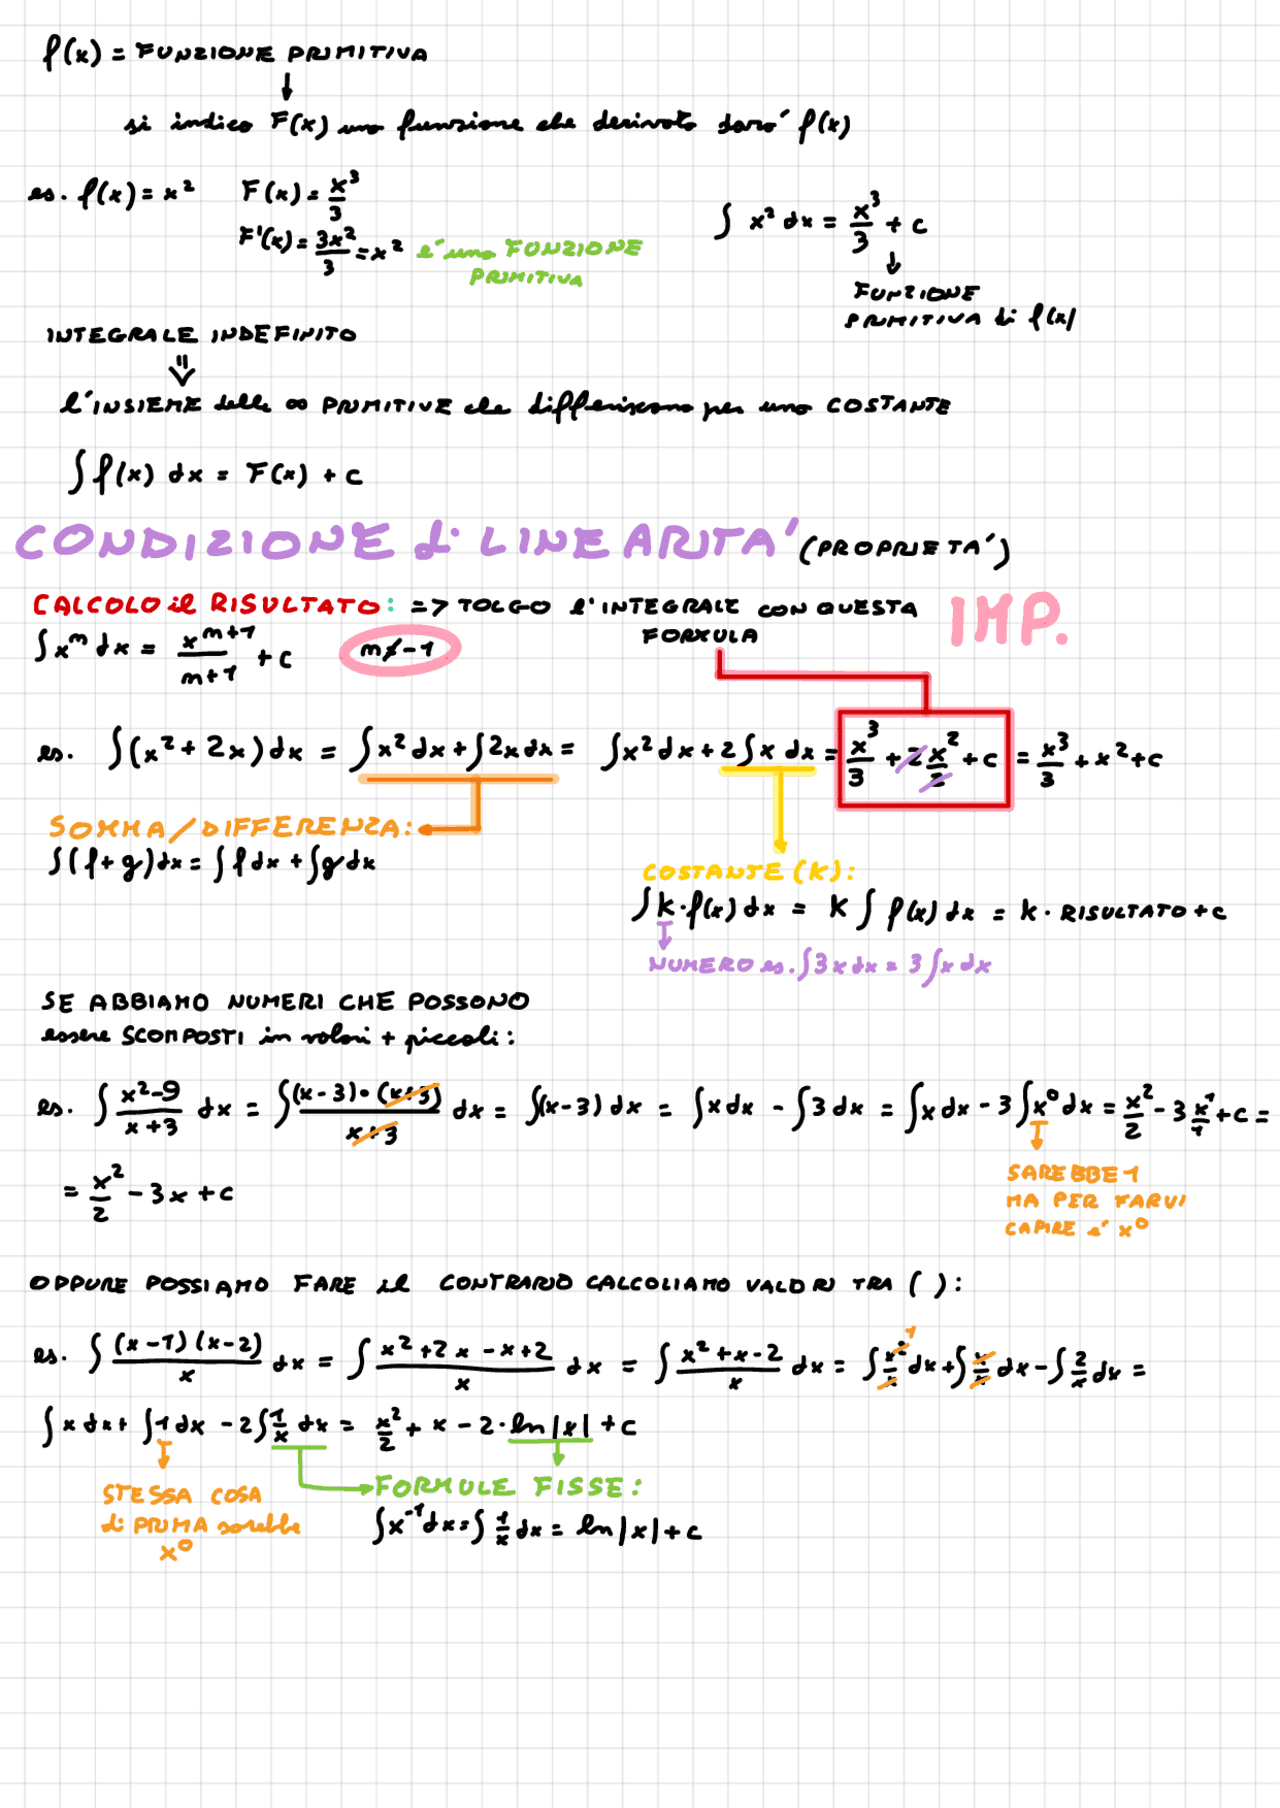 f(x) = FUNZIONE PRIMITIVA
↓
si indica F(x) una funzione che derivata darà f(x)
es. f(x) = x²   F(x) = x³/3
F'(x) = 3x²/3 = x² è una FUNZIONE PRIMITIVA
∫ x² dx = x³/3 + c
↓
FUNZIONE
PRIMITIVA di f(x)
INTEGRALE INDEFINITO
⇓
l'INSIEME delle ∞ PRIMITIVE che differiscono per una COSTANTE
∫ f(x) dx = F(x) + c
CONDIZIONE di LINEARITA' (PROPRIETA')
CALCOLO il RISULTATO: => TOLGO l'INTEGRALE CON QUESTA
FORXULA
IMP.
∫ xᵐ dx = x^(m+1)/(m+1) + c   m≠-1
es. ∫(x² + 2x) dx = ∫x² dx + ∫2x dx = ∫x² dx + 2∫x dx = x³/3 + 2 x²/2 + c = x³/3 + x² + c
SOMMA/DIFFERENZA:
∫(f+g) dx = ∫f dx + ∫g dx
COSTANTE (K):
∫ k·f(x) dx = K ∫ f(x) dx = k · RISULTATO + c
NUMERO es. ∫3x dx = 3∫x dx
SE ABBIAMO NUMERI CHE POSSONO
essere SCOMPOSTI in valori + piccoli:
es. ∫ (x²-9)/(x+3) dx = ∫ (x-3)·(x+3)/(x+3) dx = ∫(x-3) dx = ∫x dx - ∫3 dx = ∫x dx - 3∫x⁰ dx = x²/2 - 3 x¹/1 + c =
SAREBBE 1
MA PER FARVI
CAPIRE è x⁰
= x²/2 - 3x + c
OPPURE POSSIAMO FARE il CONTRARIO CALCOLIAMO VALORI TRA ( ):
es. ∫ (x-1)(x-2)/x dx = ∫ (x²+2x-x+2)/x dx = ∫ (x²+x-2)/x dx = ∫ x²/x dx + ∫ x/x dx - ∫ 2/x dx =
1
∫x dx + ∫1 dx - 2∫ 1/x dx = x²/2 + x - 2·ln|x| + c
STESSA COSA
di PRIMA sarebbe
x⁰
FORMULE FISSE:
∫x⁻¹ dx = ∫ 1/x dx = ln|x| + c